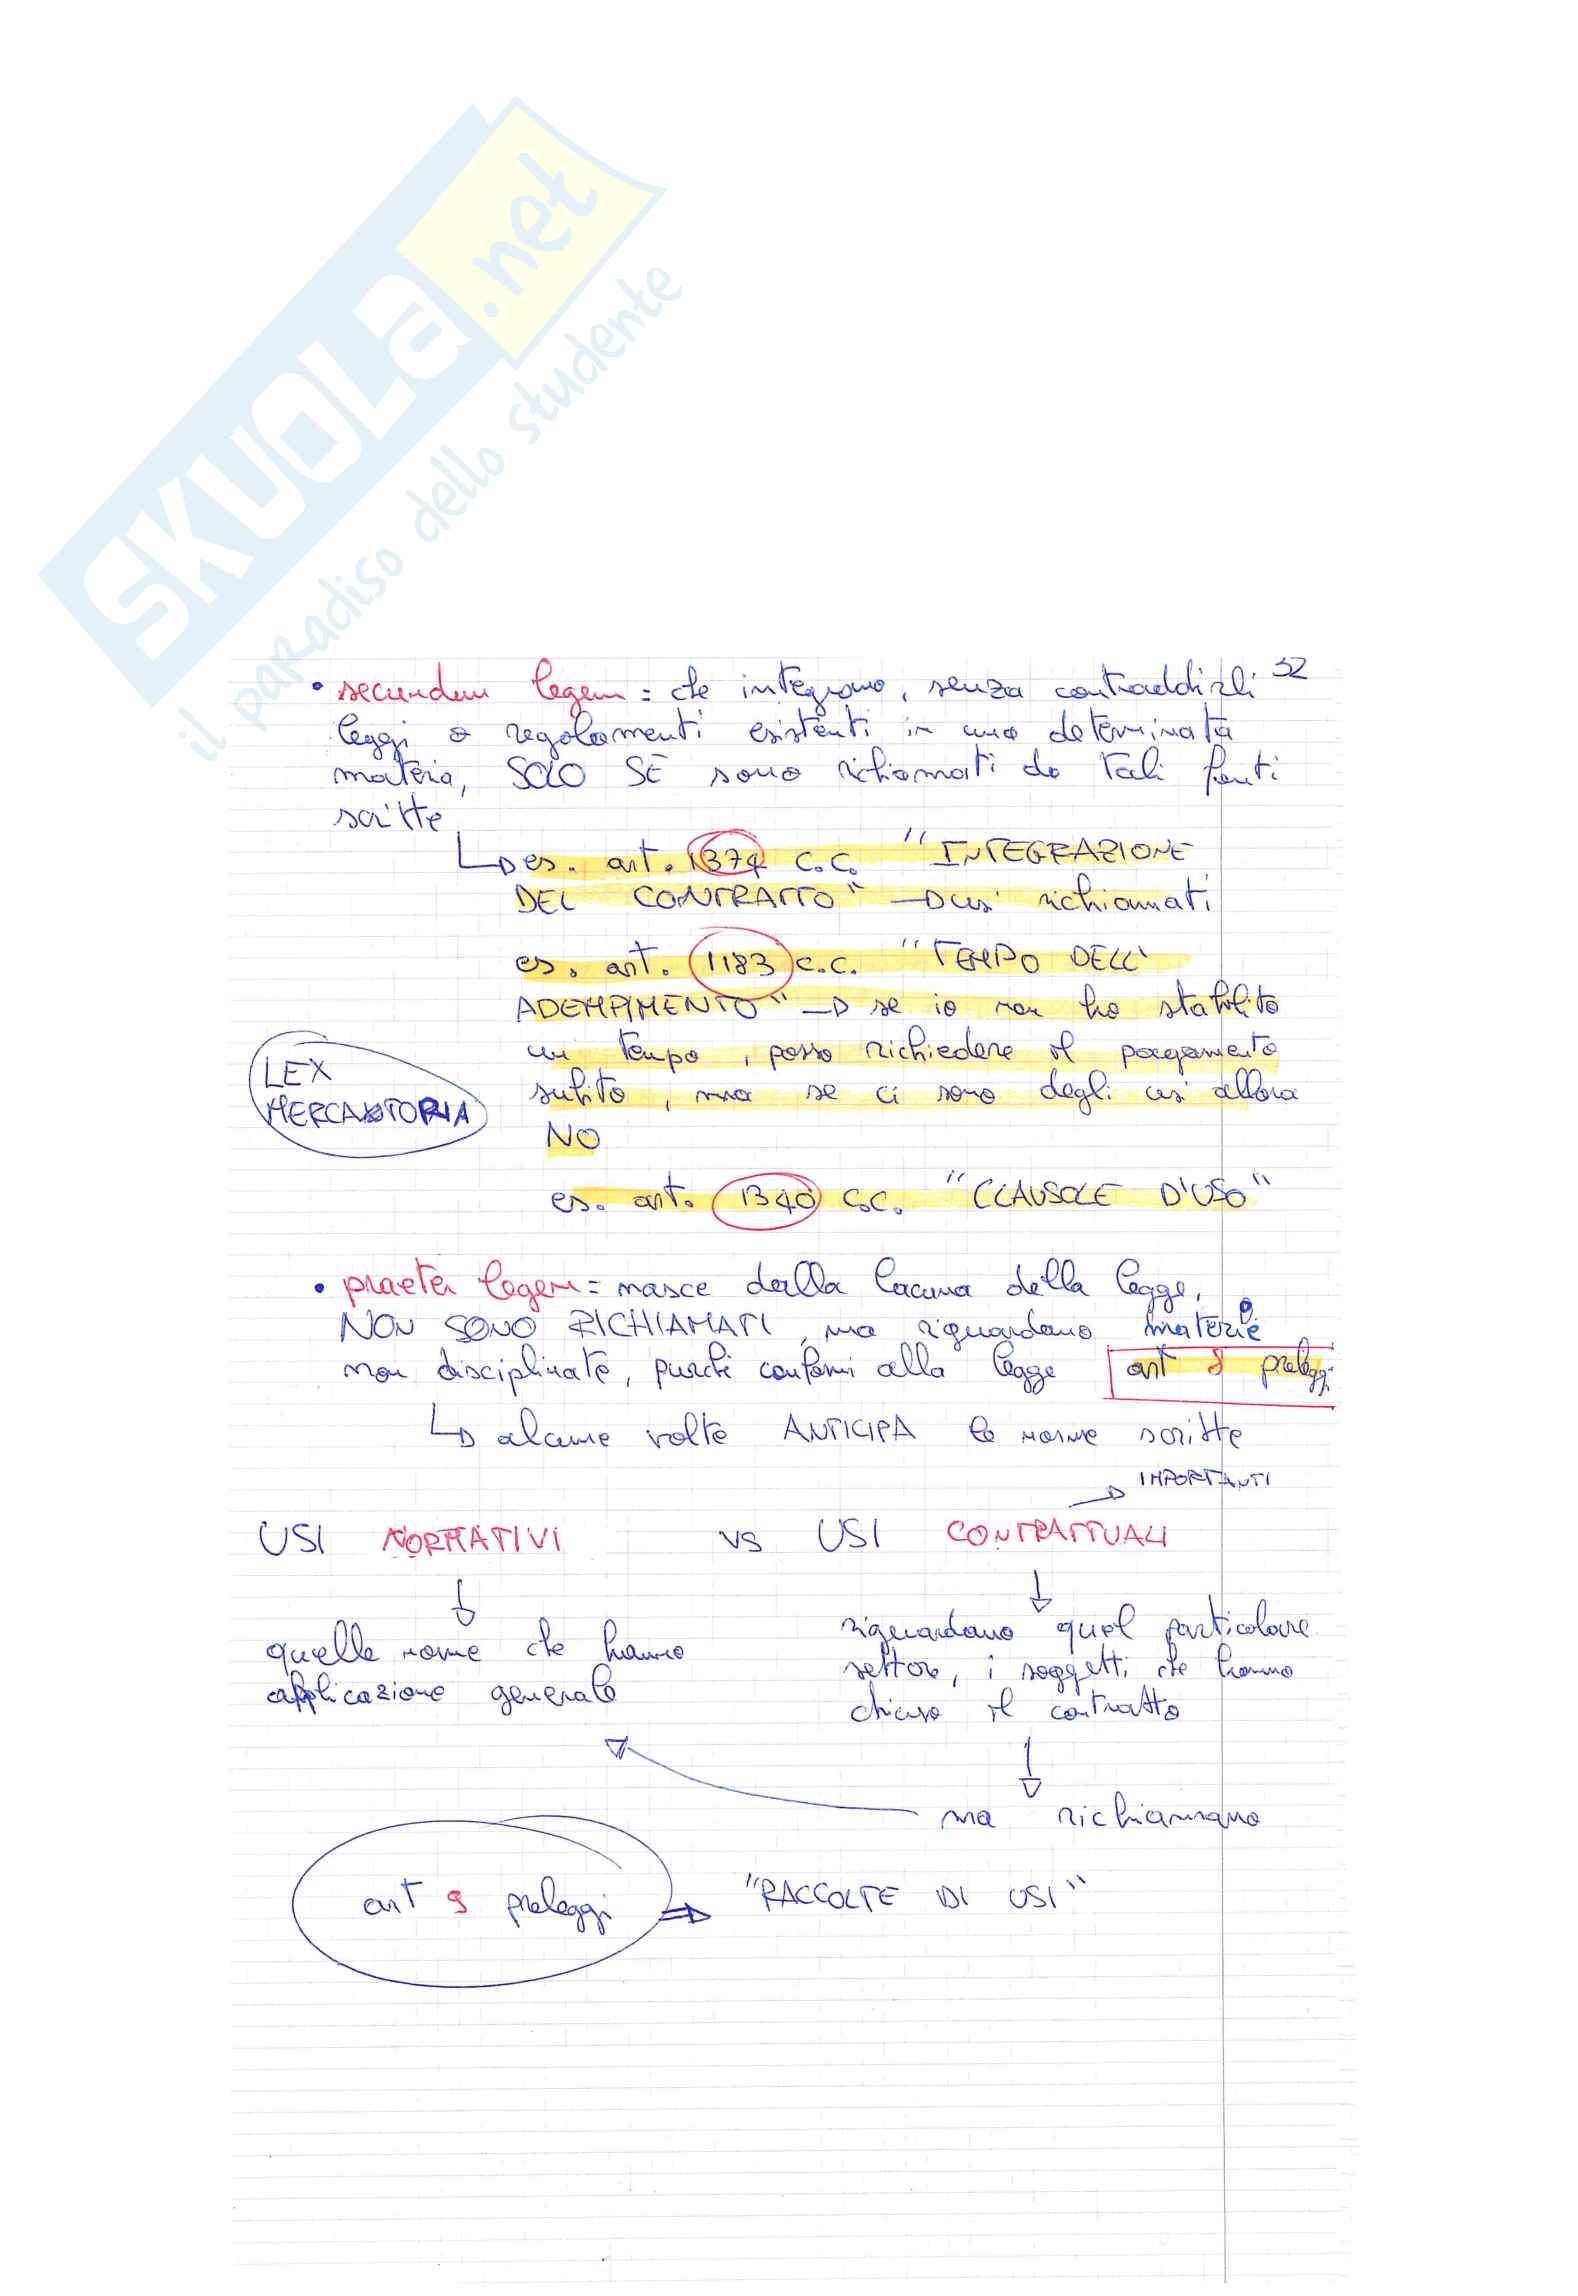 SKUOLA.net
il paradiso dello studente
52
• secundum legem = che integrano, senza contraddirli
leggi o regolamenti esistenti in una determinata
materia, SOLO SE sono richiamati da tali fonti
scritte
↳ es. art. 1374 c.c. "INTEGRAZIONE
DEL CONTRATTO" → usi richiamati
es. art. 1183 c.c. "TEMPO DELL'
ADEMPIMENTO" → se io non ho stabilito
un tempo, posso richiedere il pagamento
subito, ma se ci sono degli usi allora
NO
LEX
MERCATORIA
es. art. 1340 c.c. "CLAUSOLE D'USO"
• praeter legem = nasce dalla lacuna della legge,
NON SONO RICHIAMATI, ma riguardano materie
non disciplinate, purché conformi alla legge art 8 preleggi
↳ alcune volte ANTICIPA le norme scritte
→ IMPORTANTI
USI NORMATIVI vs USI CONTRATTUALI
↓ ↓
quelle norme che hanno
applicazione generale
riguardano quel particolare
settore, i soggetti che hanno
chiuso il contratto
↓
ma richiamano
art 9 preleggi ⇒ "RACCOLTE DI USI"